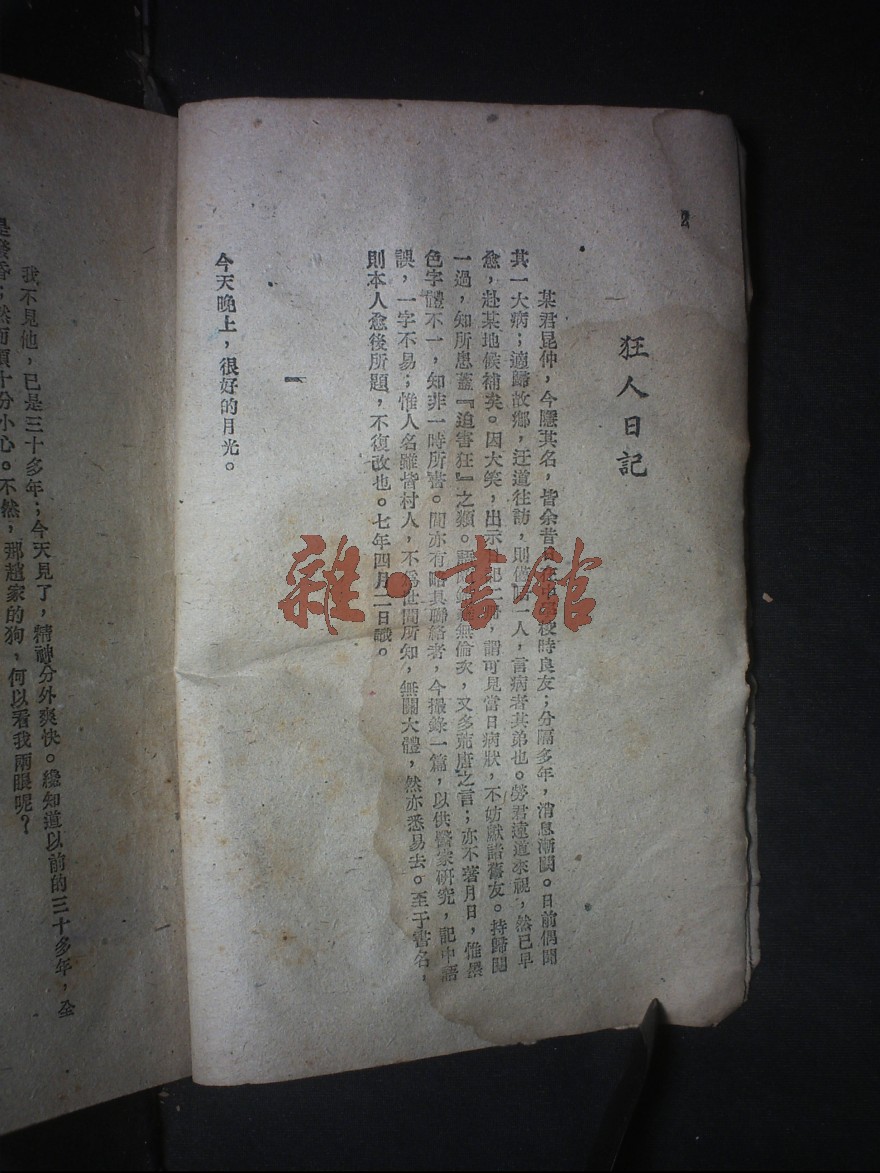 狂人日記
某君昆仲，今隱其名，皆余昔校時良友；分隔多年，消息漸闕。日前偶聞
其一大病；適歸故鄉，迂道往訪，則僅晤一人，言病者其弟也。勞君遠道來視，然已早
愈，赴某地候補矣。因大笑，出示，謂可見當日病狀，不妨獻諸舊友。持歸閱
一過，知所患蓋『迫害狂』之類。無倫次，又多荒唐之言；亦不著月日，惟墨
色字體不一，知非一時所書。間亦有略具聯絡者，今撮錄一篇，以供醫家研究，記中語
誤，一字不易；惟人名雖皆村人，不爲世間所知，無關大體，然亦悉易去。至于書名，
則本人愈後所題，不復改也。七年四月二日識。
一
今天晚上，很好的月光。
我不見他，已是三十多年；今天見了，精神分外爽快。纔知道以前的三十多年，全
是發昏；然而須十分小心。不然，那趙家的狗，何以看我兩眼呢？
雜·書館